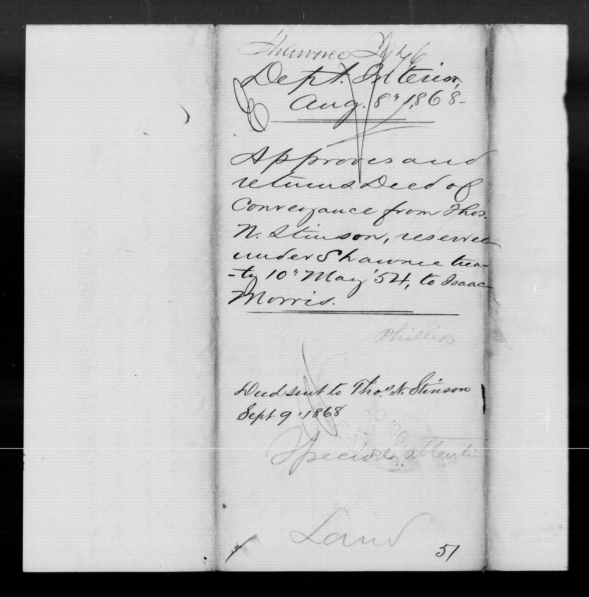 Shawnee
Dept. Interior,
Aug. 8" 1868-
Approves and
returns Deed of
Conveyance from Thos.
N. Stinson, reserve
under Shawnee trea-
-ty 10" May '54, to Isaac
Morris.
Phillips
Deed sent to Thos. N. Stinson
Sept 9-1868
Special attenti
Land
51